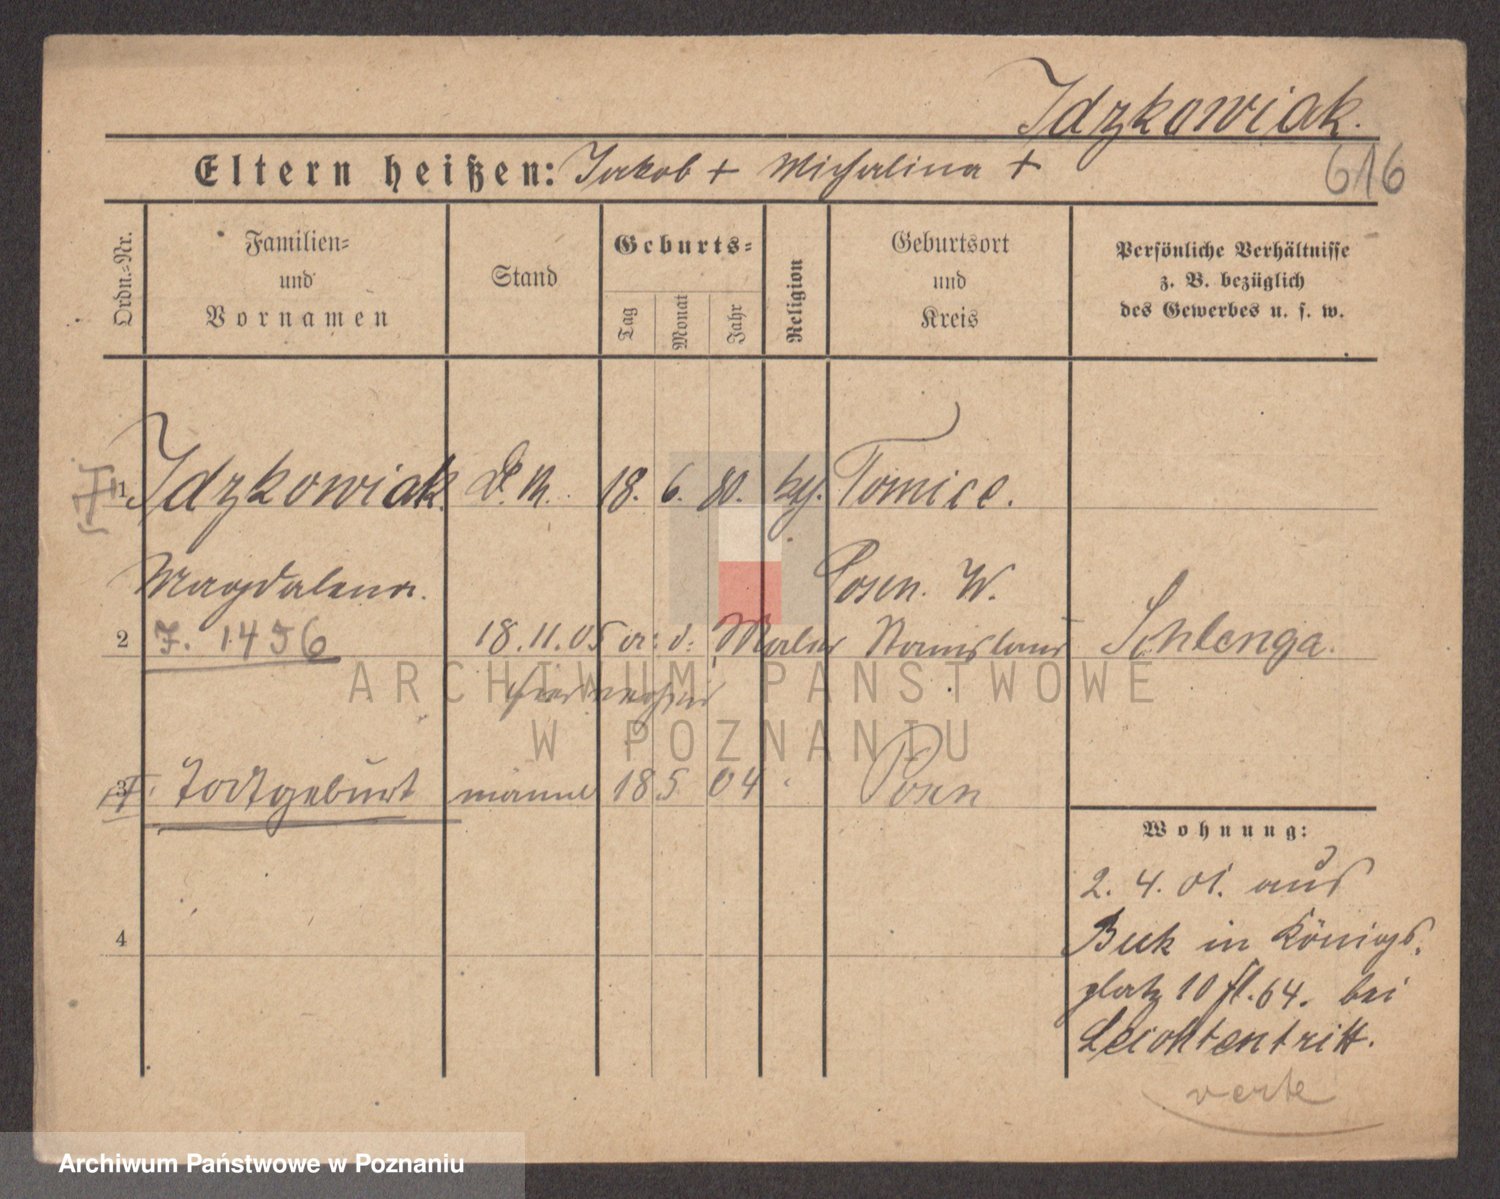 Idzkowiak.
Eltern heißen: Jakob + Michalina +
616
Ordn.-Nr.
Familien- und Vornamen
Stand
Geburts-
Tag
Monat
Jahr
Religion
Geburtsort und Kreis
Persönliche Verhältnisse
z. B. bezüglich
des Gewerbes u. s. w.
1 Idzkowiak. D. M. 18. 6. 80. kth. Tomice.
Magdalena. Posen. W.
2 F. 1456 18.11.05 a: d: Maler Stanislaus Schlenga.
hier verheir
3 Todtgeburt männl 18 5. 04 Posen
Wohnung:
2. 4. 01. aus
4
Buk in Königs-
platz 10 fl. 64. bei
Leichtentritt.
verte
ARCHIWUM PAŃSTWOWE
W POZNANIU
Archiwum Państwowe w Poznaniu